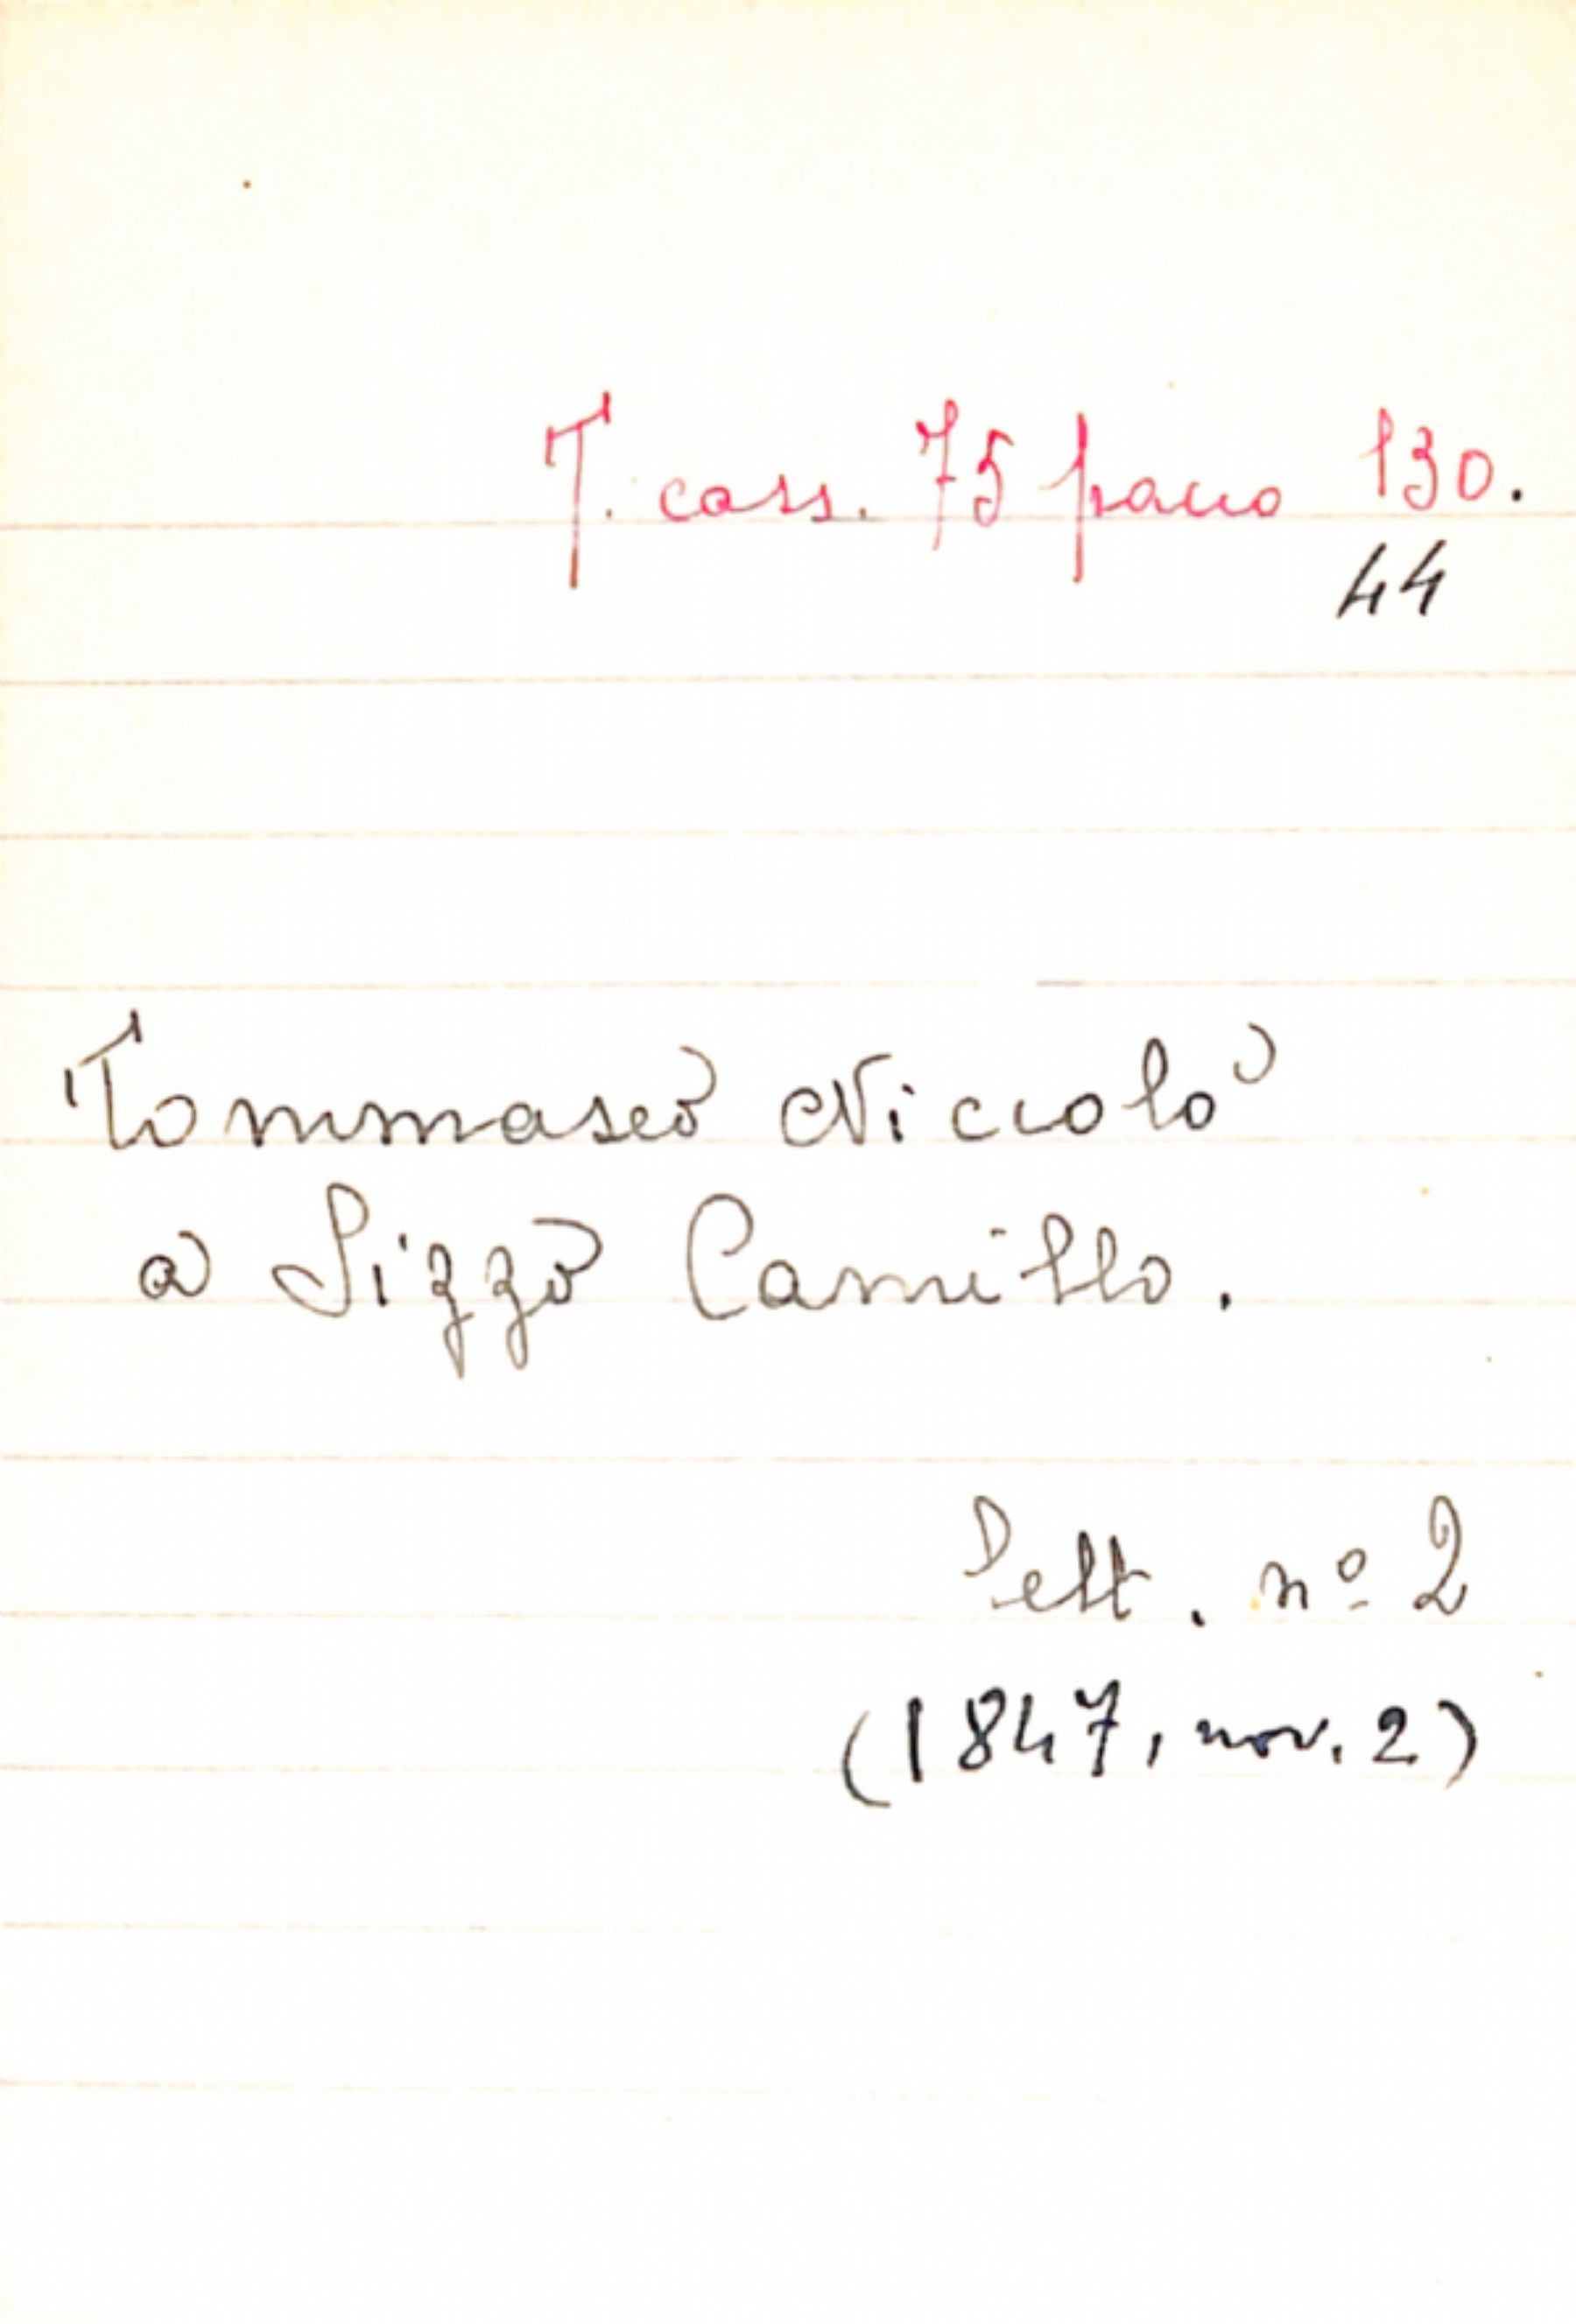 T. cass. 75 pacco 130.
44
Tommaseo Niccolò
a Sizzo Camillo.
Lett. nº 2
(1847, nov. 2)